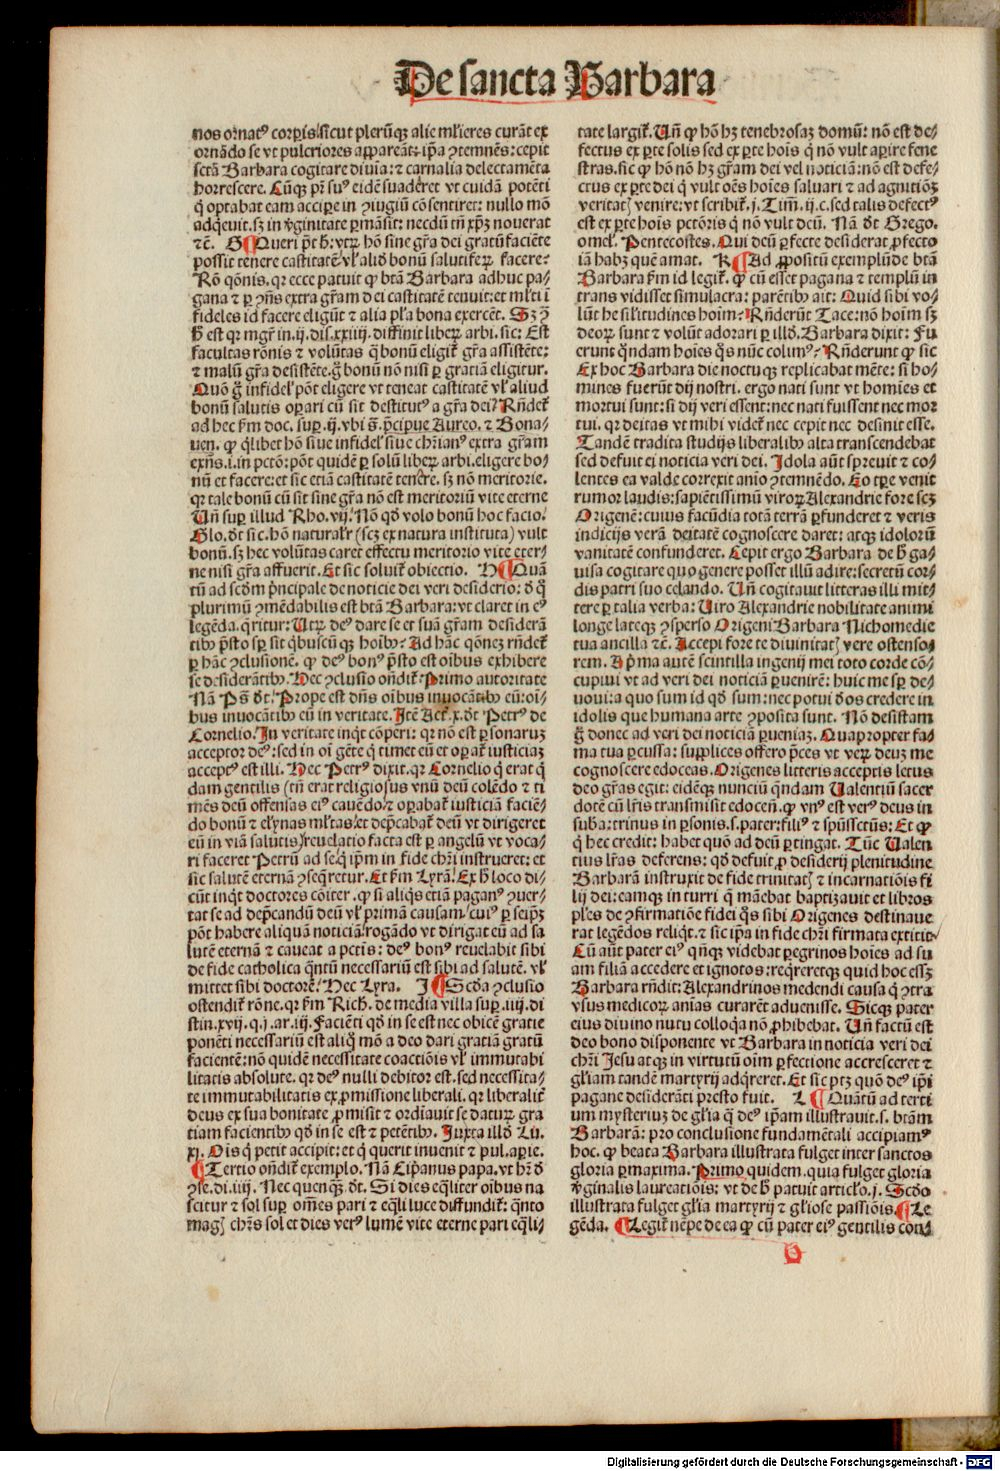 De sancta Barbara
nos ornatꝰ corpis sicut plerūqꝫ alie mlieres curāt ex
ornādo se vt pulcriores appareāt: ip̄a ɔtemnēs: cepit
scta Barbara cogitare diuīa: ⁊ carnalia delectamēta
horrescere. Cūqꝫ pr̄ suꝰ eidē suaderet vt cuidā potēti
q̇ optabat eam accipe in ɔiugiū cōsentiret: nullo mō
adqeuit. sꝫ in v̇ginitate ꝑmāsit: necdū tn̄ xp̄ꝫ nouerat
⁊c̄. G ¶ Queri pt̄ h̄: vtrꝫ hō sine gr̄a dei gratū faciēte
possit tenere castitatē vl̓ aliō bonū salutiferꝫ facere?
Rō qōnis. qꝛ ecce patuit ꝙ btā Barbara adhuc pa-
gana ⁊ ꝑ ɔn̄s extra gr̄am dei castitatē tenuit: et ml̓ti ī
fideles id facere eligūt ⁊ alia pl̓a bona exercēt. Sꝫ ɔ̄
h̄ est qꝛ mgr̄ in .ij. dis. xxiiij. diffinit liberꝫ arbi. sic: Est
facultas rōnis ⁊ volūtas q̄ bonū eligit̄ gr̄a assistēte:
⁊ malū gr̄a desistēte. g̊ bonū nō nisi ꝑ gratiā eligitur.
Quō g̊ infidel̓ pōt eligere vt teneat castitatē vl̓ aliud
bonū salutis oꝑari cū sit destitutꝰ a gr̄a dei? Rn̄det̄
ad hec ẜm doc. suꝑ .ij. vbi s̄. p̄cipue Aureo. ⁊ Bona-
uen. ꝙ q̄libet hō siue infidel̓ siue chr̄ianꝰ extra gr̄am
exn̄s .i. in pctō: pōt quidē ꝑ solū liberꝫ arbi. eligere bo-
nū et facere: et sic etiā castitatē tenere. sꝫ nō meritorie.
qꝛ tale bonū cū sit sine gr̄a nō est meritoriū vite eterne
Un̄ suꝑ illud Rho. vij. Nō qd̊ volo bonū hoc facio.
Glo. dt̄ sic. hō naturalr̓ (scꝫ ex natura instituta) vult
bonū. sꝫ hec volūtas caret effectu meritorio vite eter-
ne nisi gr̄a affuerit. Et sic soluit̄ obiectio. H ¶ Quā
tū ad scd̓m p̄ncipale de noticie dei veri desiderio: ī q̊
plurimū ɔmēdabilis est btā Barbara: vt claret in eꝰ
legēda. q̄ritur: Utrꝫ deꝰ dare se et suā gr̄am desiderā
tibꝰ p̄sto sp̄ sit qͥbuscūqꝫ hoībꝰ? Ad hāc qōneꝫ rn̄det̄
ꝑ hāc ɔclusionē. ꝙ deꝰ bonꝰ p̄sto est oībus exhibere
se desiderātibꝰ. Hec ɔclusio on̄dit̄. Primo autoritate
Nā Ps̄ dt̄. Prope est dn̄s oībus inuocātibꝰ eū: oī-
bus inuocātibꝰ eū in veritate. Itē Act̄. x. dt̄ Petrꝰ de
Cornelio. In veritate inqͥt cōperi: qꝛ nō est ꝑsonaruꝫ
acceptor deꝰ: sed in oī gēte q̇ timet eū et oꝑat̄ iusticiaꝫ
acceptꝰ est illi. Hec Petrꝰ dixit. qꝛ Cornelio q̇ erat q̇
dam gentilis (tn̄ erat religiosus vnū deū colēdo ⁊ ti
mēs deū offensas eiꝰ cauēdo. ⁊ oꝑabat̄ iusticiā faciē-
do bonū ⁊ elynas ml̓tas: et dep̄cabat̄ deū vt dirigeret
eū in viā salutis) reuelatio facta est ꝑ angelū vt voca-
ri faceret Petrū ad se: q̇ ip̄m in fide chr̄i instrueret: et
sic salutē eternā ɔseq̄retur. Et ẜm Lyrā. Ex h̄ loco di-
cūt inqͥt doctores cōiter. ꝙ si aliqͥs etiā paganꝰ ɔuer-
tat se ad dep̄candū deū vl̓ primā causam. cuiꝰ ꝑ seip̄ꝫ
pōt habere aliquā noticiā. rogādo vt dirigat eū ad sa
lutē eternā ⁊ caueat a pctīs: deꝰ bonꝰ reuelabit sibi
de fide catholica qn̄tū necessariū est sibi ad salutē. vl̓
mittet sibi doctorē. Hec Lyra. I ¶ Scd̓a ɔclusio
ostendit̄ rōne. qꝛ ẜm Rich. de media villa suꝑ .iiij. di
stin. xvij. q. j. ar. iij. Faciēti qd̊ in se est nec obicē gratie
ponēti necessariū est aliq̊ mō a deo dari gratiā gratū
facientē: nō quidē necessitate coactiōis vl̓ immutabi
litatis absolute. qꝛ deꝰ nulli debitor est. sed necessita-
te immutabilitatis ex ꝓmissione liberali. qꝛ liberalit̄
deus ex sua bonitate ꝓmisit ⁊ ordīauit se daturꝫ gra
tiam facientibꝰ qd̊ in se est ⁊ petētibꝰ. Iuxta illd̊ Lu.
xj. Oīs q̇ petit accipit: et q̇ querit inuenit ⁊ pul. aꝑie.
¶ Tertio on̄dit̄ exemplo. Nā Cip̄anus papa. vt hr̄ d̊
ɔse. di. iiij. Nec quenqꝫ. dt̄. Si dies eq̄liter oībus na
scitur ⁊ sol suꝑ omēs pari ⁊ eq̄li luce diffundit̄: qn̄to
magꝭ chr̄s sol et dies verꝰ lumē vite eterne pari eq̄li-
tate largit̄. Un̄ ꝙ hō hꝫ tenebrosaꝫ domū: nō est de-
fectus ex ꝑte solis sed ex ꝑte hoīs q̇ nō vult aꝑire fene
stras. sic ꝙ hō nō hꝫ gr̄am dei vel noticiā: nō est defe-
ctus ex ꝑte dei q̇ vult oēs hoīes saluari ⁊ ad agnitiōꝫ
veritatꝭ venire: vt scribit̄. j. Tim̄. ij. c. sed talis defectꝰ
est ex ꝑte hoīs pctōris q̇ nō vult deū. Nā dt̄ Grego.
omel̓. Pentecostes. Qui deū ꝑfecte desiderat ꝓfecto
iā habꝫ quē amat. K ¶ Ad ꝓpositū exemplū de btā
Barbara ẜm id legit̄. ꝙ cū esset pagana ⁊ templū in
trans vidisset simulacra: parētibꝰ ait: Quid sibi vo-
lūt he sil̓itudines hoīm? Rn̄derūt Tace: nō hoīm sꝫ
deorꝫ sunt ⁊ volūt adorari ꝑ illd̊. Barbara dixit: Fu
erunt q̄ndam hoīes q̊s nūc colim̄ꝰ? Rn̄derunt ꝙ sic
Ex hoc Barbara die noctuqꝫ replicabat mēte: si ho-
mines fuerūt dij nostri. ergo nati sunt vt homīes et
mortui sunt: si dij veri essent: nec nati fuissent nec mor
tui. qꝛ deitas vt mihi videt̄ nec cepit nec desinit esse.
Tandē tradita studijs liberalibꝰ alta transcendebat
sed defuit ei noticia veri dei. Idola aūt spreuit ⁊ co-
lentes ea valde correxit anīo ɔtemnēdo. Eo tꝑe venit
rumor laudis: sapiētissimū virorꝫ Alexandrie fore scꝫ
Origenē: cuius facūdia totā terrā ꝑfunderet ⁊ veris
indicijs verā deitatē cognoscere daret: atqꝫ idolorū
vanitatē confunderet. Cepit ergo Barbara de h̄ ga-
uisa cogitare quo genere posset illū adire: secretū cor-
dis patri suo celando. Un̄ cogitauit litteras illi mit-
tere ꝑ talia verba: Uiro Alexandrie nobilitate animi
longe lateqꝫ ɔsperso Origeni Barbara Nichomedie
tua ancilla ⁊c̄. Accepi fore te diuinitatꝭ vere ostenso-
rem. A p̄ma autē scintilla ingenij mei toto corde cō-
cupiui vt ad veri dei noticiā ꝑuenirē: huic me sp̄ de-
uoui: a quo sum id qd̊ sum: nec potui dos credere in
idolis que humana arte ɔposita sunt. Nō desistam
g̊ donec ad veri dei noticiā ꝑueniaꝫ. Quapropter fa-
ma tua ꝑcussa: supplices offero p̄ces vt verꝫ deuꝫ me
cognoscere edoceas. Origenes litteris acceptis letus
deo gr̄as egit: eidēqꝫ nunciū q̄ndam Ualentiū sacer
dotē cū lr̄is transmisit edocen̄. ꝙ vnꝰ est verꝰ deus in
suba: trinus in ꝑsonis. s. pater: filiꝰ ⁊ spūssctūs: Et ꝙ
q̇ hec credit: habet quō ad deū ꝑtingat. Tūc Ualen
tius lr̄as deferens: qd̊ defuit ꝓ desiderij plenitudine
Barbarā instruxit de fide trinitatꝭ ⁊ incarnatiōis fi
lij dei: eamqꝫ in turri q̄ manebat baptizauit et libros
pl̓es de ɔfirmatiōe fidei q̊s sibi Origenes destinaue
rat legēdos reliqͥt. ⁊ sic ip̄a in fide chr̄i firmata extitit.
Cū aūt pater eiꝰ qn̄qꝫ videbat ꝑegrinos hoīes ad su
am filiā accedere et ignotos: reqͥreretqꝫ quid hoc essꝫ
Barbara rn̄dit: Alexandrinos medendi causa q̇ ɔtra
vsus medicorꝫ anīas curarēt aduenisse. Sicqꝫ pater
eius diuino nutu colloqͥa nō ꝓhibebat. Un̄ factū est
deo bono disponente vt Barbara in noticia veri dei
chr̄i Jesu atqꝫ in virtutū oīm ꝑfectione accresceret ⁊
gl̓iam tandē martyrij adq̄reret. Et sic ptꝫ quō deꝰ ip̄i
pagane desiderāti presto fuit. L ¶ Quātū ad terti
um mysteriuꝫ de gl̓ia q̄ deꝰ ip̄am illustrauit. s. btām
Barbarā: pro conclusione fundamētali accipiamꝰ
hoc. ꝙ beata Barbara illustrata fulget inter sanctos
gloria ꝑmaxima. Primo quidem. quia fulget gloria
v̇ginalis laureatiōis: vt de h̄ patuit articl̓o. j. Scd̊o
illustrata fulget gl̓ia martyrij ⁊ gl̓iose passiōis. ¶ Le
gēda. ¶ Legit̄ nēpe de ea ꝙ cū pater eiꝰ gentilis con-
Digitalisierung gefördert durch die Deutsche Forschungsgemeinschaft - DFG